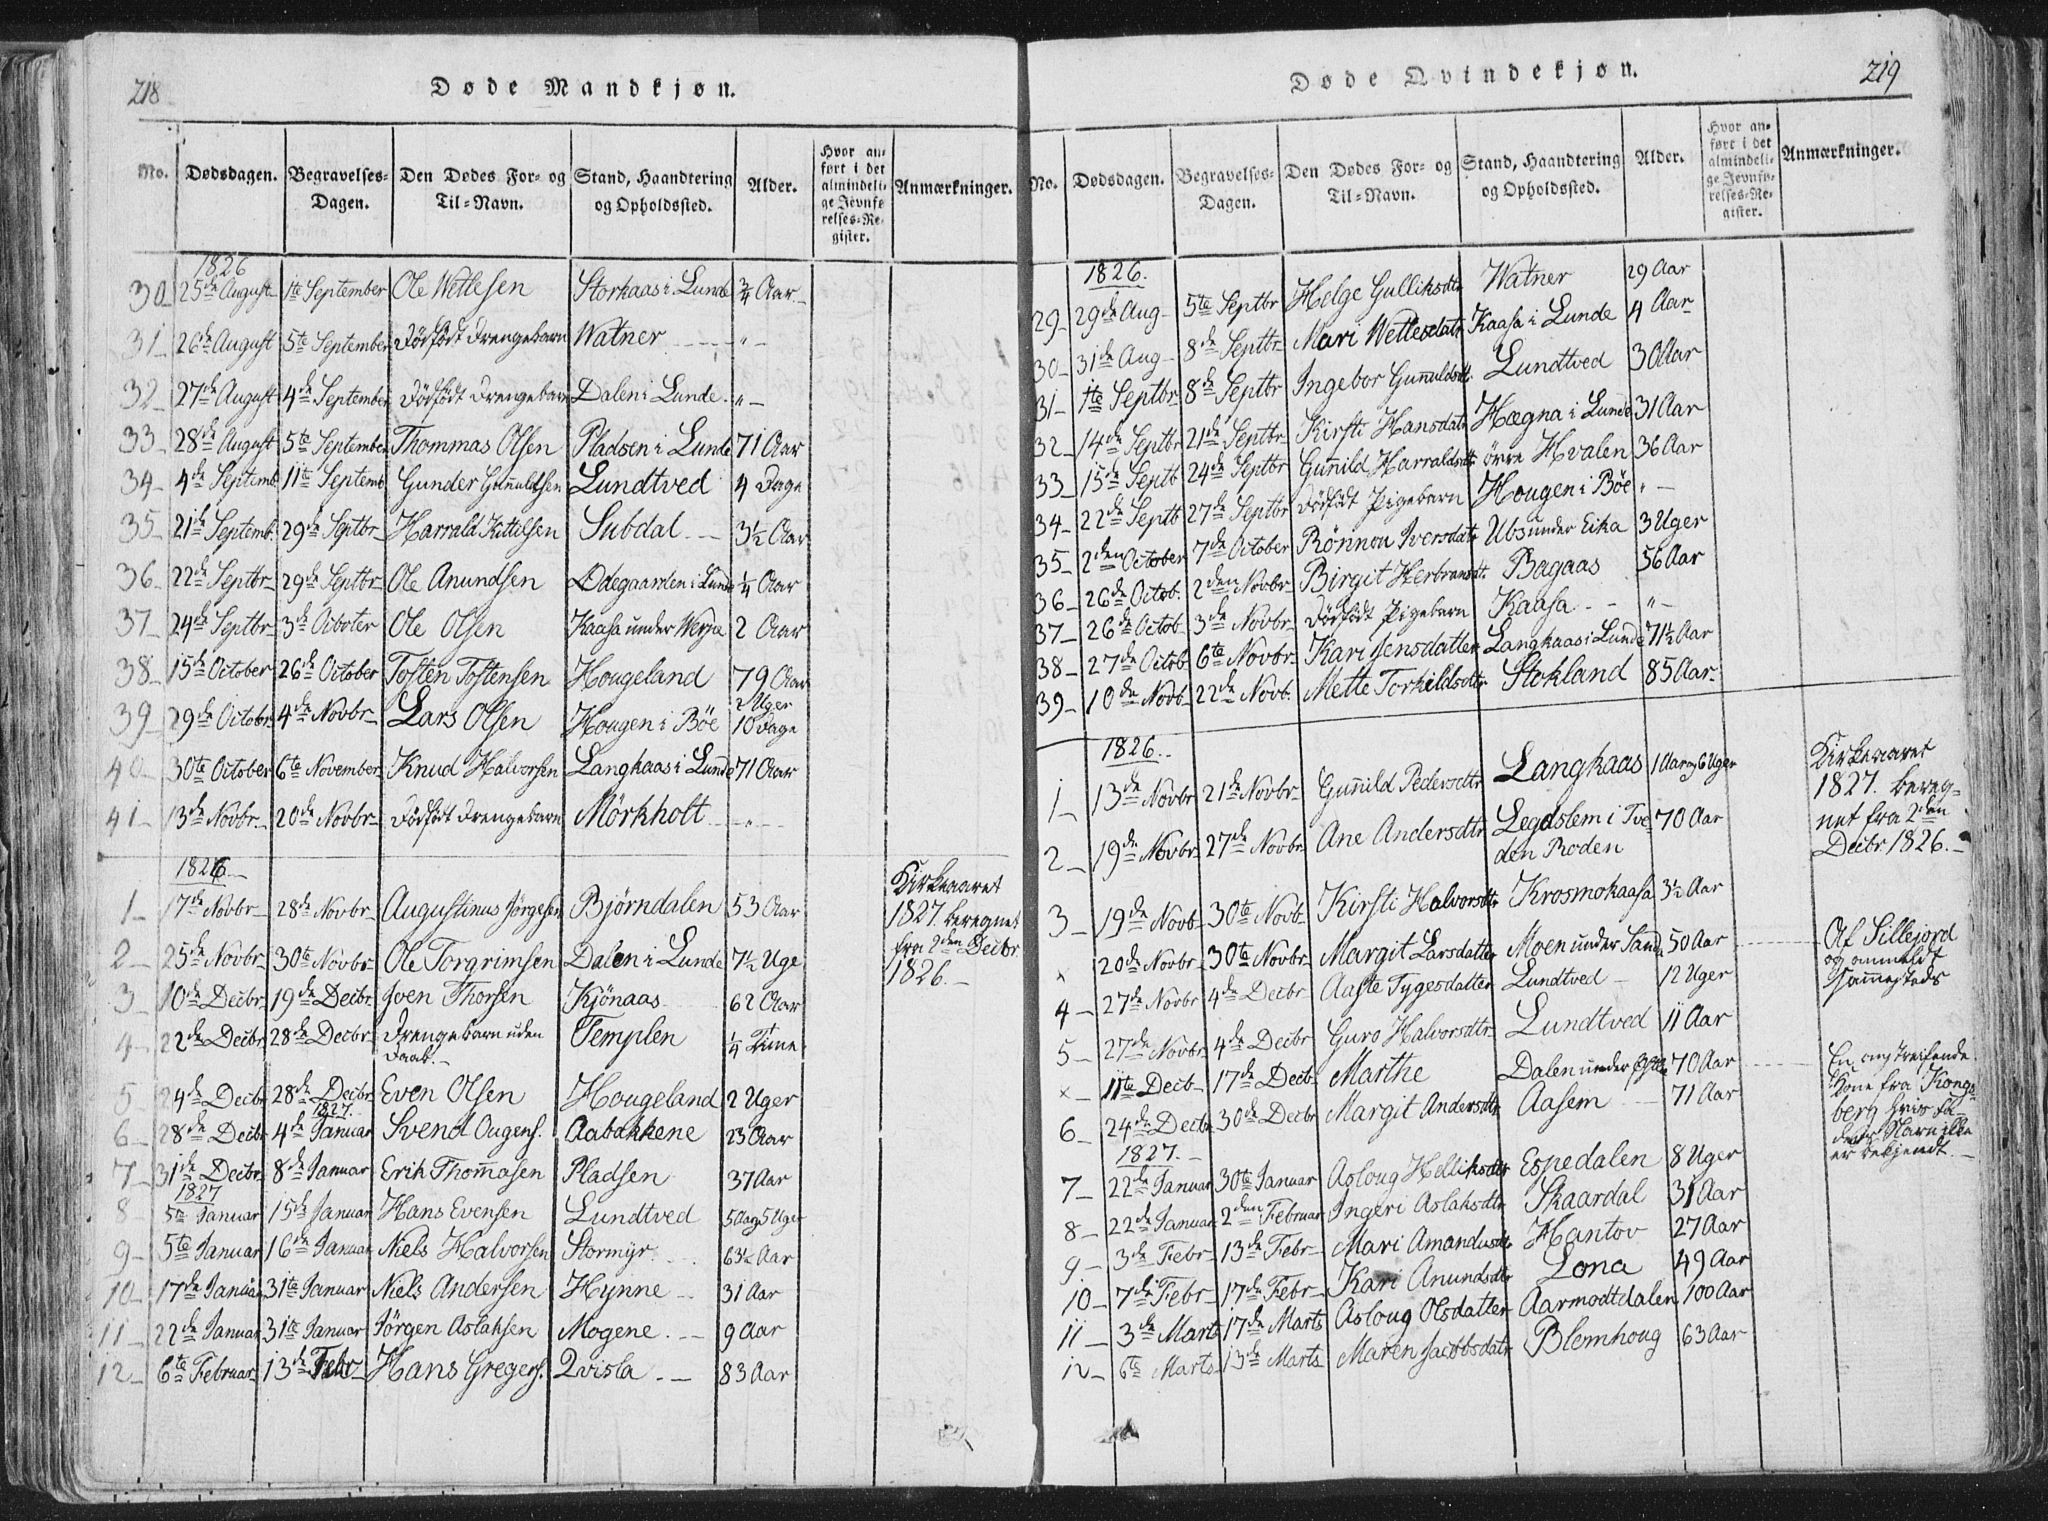 218
Døde Mandkjøn.
No. Dødsdagen. Begravelses-Dagen. Den Dødes For- og Til-Navn. Stand, Haandtering og Opholdssted. Alder. Hvor anført i det almindelige Jevnførelses-Register. Anmærkninger.
1826
30 25de August 1te September Ole Wetlesen Storkaas i Lunde 3/4 Aar
31 26de August 5te September Dödfödt Drengebarn Watner "
32 27de August 4de September Dödfödt Drengebarn Dalen i Lunde "
33 28de August 5te September Thommas Olsen Pladsen i Lunde 71 Aar
34 4de Septemb. 11te Septemb. Gunder Guñuldsen Lundtved 4 Dage
35 21de Septemb. 29de Septbr Harrald Kittelsen Subdal 3½ Aar
36 22de Septbr 29de Septbr Ole Anundsen Ödegaarden i Lunde ¼ Aar
37 24de Septbr 3de Octoter Ole Olsen Kaasa under Werpe 2 Aar
38 15de October 26de October Tosten Tostensen Hougeland 79 Aar
39 29de Octobr 4de Novbr Lars Olsen Hougen i Böe 2 Uger 10 Dage
40 30te October 6te November Knud Halvorsen Langkaas i Lunde 71 Aar
41 13de Novbr 20de Novbr Dödfödt Drengebarn Mörkholt "
1826
1 17de Novbr 28de Novbr Augustinus Jörgesen Björndalen 53 Aar Kirkeaaret 1827. beregnet fra 2den Decbr 1826.
2 25de Novbr 30te Novbr Ole Torgrimsen Dalen i Lunde 7½ Uge
3 10de Decbr 19de Decbr Iven Thorsen Kjönaas 62 Aar
4 22de Decbr 28de Decbr Drengebarn uden Daab. Templen ¼ Time
5 24de Decbr 28de Decbr Even Olsen Hougeland 2 Uger
1827.
6 28de Decbr 4de Januar Svend Ougens. Aabakkene 23 Aar
7 31te Decbr 8de Januar Erik Thom̃asen Pladsen 37 Aar
1827
8 5te Januar 15de Januar Hans Evensen Lundtved 5 Aar 5 Uger
9 5te Januar 16de Januar Niels Halvorsen Stormyr 63½ Aar
10 17de Januar 31te Januar Niels Andersen Hynne 31 Aar
11 22de Januar 31te Januar Jörgen Aslaksen Mogene 9 Aar
12 6te Februar 13de Febr Hans Gregers. Qvisla 83 Aar
219
Døde Qvindekjøn.
No. Dødsdagen. Begravelses-Dagen. Den Dødes For- og Til-Navn. Stand, Haandtering og Opholdssted. Alder. Hvor anført i det almindelige Jevnførelses-Register. Anmærkninger.
1826.
29 29de Aug 5te Septbr Helge Gulliksdtr Watner 29 Aar
30 31de Aug 8de Septbr Mari Wettesdatr Kaasa i Lunde 4 Aar
31 1te Septbr 8de Septbr Ingebor Guñuldsdt. Lundtved 30 Aar
32 14de Septbr 21de Septbr Kirsti Hansdatr Hægna i Lunde 31 Aar
33 15de Septb 24de Septbr Guñild Harraldsdtr övre Hvalen 36 Aar
34 22de Septb 27de Septbr Dödfödt Pigebarn Hougen i Böe "
35 2den October 7de October Rönnou Iversdatr Ubs under Eika 3 Uger
36 26de Octob. 2den Novbr Birgit Herbransdt. Bagaas 56 Aar
37 26de Octob 3de Novbr Dödfödt Pigebarn Kaasa "
38 27de Octob 6te Novbr Kari Jensdatter Langkaas i Lunde 71½ Aar
39 10de Novb 22de Novb. Mette Torkildsdtr Stokland 85 Aar
1826.
1 13de Novbr 21de Novbr Guñild Pedersdtr Langkaas 1 Aar og 6 Uger Kirkeaaret 1827. beregnet fra 2den Decbr 1826.
2 19de Novbr 27de Novbr Ane Andersdtr Legdslem i Tveden Roden 70 Aar
3 19de Novb 30te Novb. Kirsti Halvorsdtr Krosmokaasa 3½ Aar
x 20de Novbr 30te Novbr Margit Larsdatter Moen under Sand 50 Aar Af Sillejord og anmeldt sammesteds
4 27de Novbr 4de Decbr Aaste Tygesdatter Lundtved 12 Uger
5 27de Novbr 4de Decbr Guro Halvorsdtr Lundtved 11 Aar
x 11te Decb 17de Decb Marthe Dalen under 70 Aar En omstreifende Kone fra Kongsberg hvis Faders Navn ikke er bekjendt.
6 24de Decbr 30de Decbr Margit Andersdtr Aasem 71 Aar
1827.
7 22de Januar 30te Januar Asloug Helliksdtr Espedalen 8 Uger
8 22de Januar 2den Februar Ingeri Aslaksdtr Skaardal 31 Aar
9 3de Febr 13de Febr Mari Amandusdtr Hantov 27 Aar
10 7de Febr 17de Febr Kari Anundsdtr Lona 49 Aar
11 3de Marts 17de Marts Asloug Olsdatter Aarmodtdalen 100 Aar
12 6te Marts 13de Marts Maren Jacobsdatr Blemhoug 63 Aar